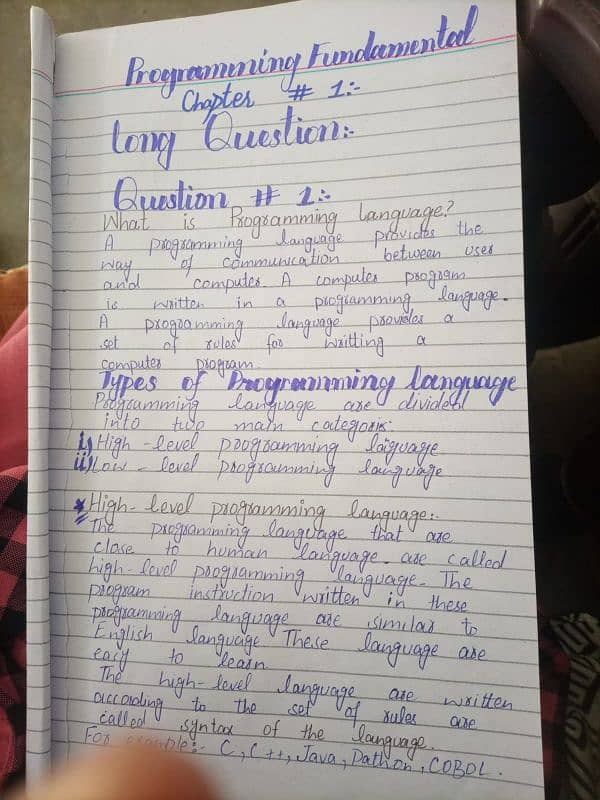 Programming Fundamental
Chapter # 1:-
Long Question:-
Question # 1:-
What is Programming Language?
A programming language provides the
way of communication between user
and computer. A computer program
is written in a programming language.
A programming language provides a
set of rules for writting a
computer program.
Types of Programming language
Programming language are divided
into two main categoris:
i) High-level programming language
ii) Low-level programming language
* High-level programming language:-
The programming language that are
close to human language. are called
high-level programming language. The
program instruction written in these
programming language are similar to
English language These language are
easy to learn
The high-level language are written
according to the set of rules are
called syntax of the language.
For example:- C, C++, Java, Pathon, COBOL.